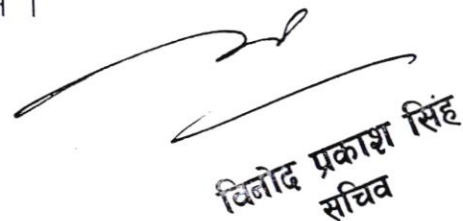 विनोद प्रकाश सिंह
सचिव